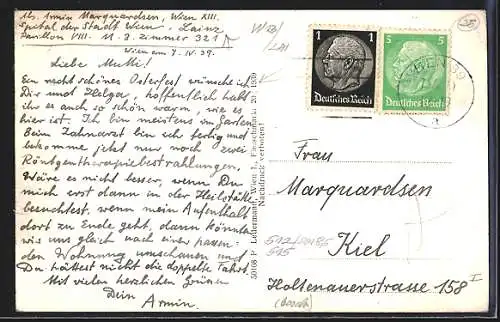 Abs. Armin Marquardsen, Wien XIII.
Spital der Stadt Wien - Lainz
Pavillon VIII. Zimmer 321
Wien am 7. IV. 39.
Liebe Mutti!
Ein recht schönes Osterfest wünsche ich
Dir und Helga, hoffentlich habt
ihr es auch so schön warm, wie es
hier ist. Ich bin meistens im Garten.
Beim Zahnarzt bin ich fertig und
bekomme jetzt nur noch zwei
Röntgentherapiebestrahlungen.
Wäre es nicht besser, wenn Du
mich erst dann in der Heilstätte
besuchtest, wenn mein Aufenthalt
dort zu Ende geht, dann könnten
wir uns gleich nach einer passen-
den Wohnung umschauen und
Du hättest nicht die doppelte Fahrt.
Mit vielen herzlichen Grüssen
Dein
Armin.
50068 P. Ledermann, Wien I., Fleischmarkt 20. 1939
Nachdruck verboten!
1 1
Deutsches Reich
5 5
Deutsches Reich
WIEN
Frau
Marquardsen
Kiel
Holtenauerstrasse 158 I